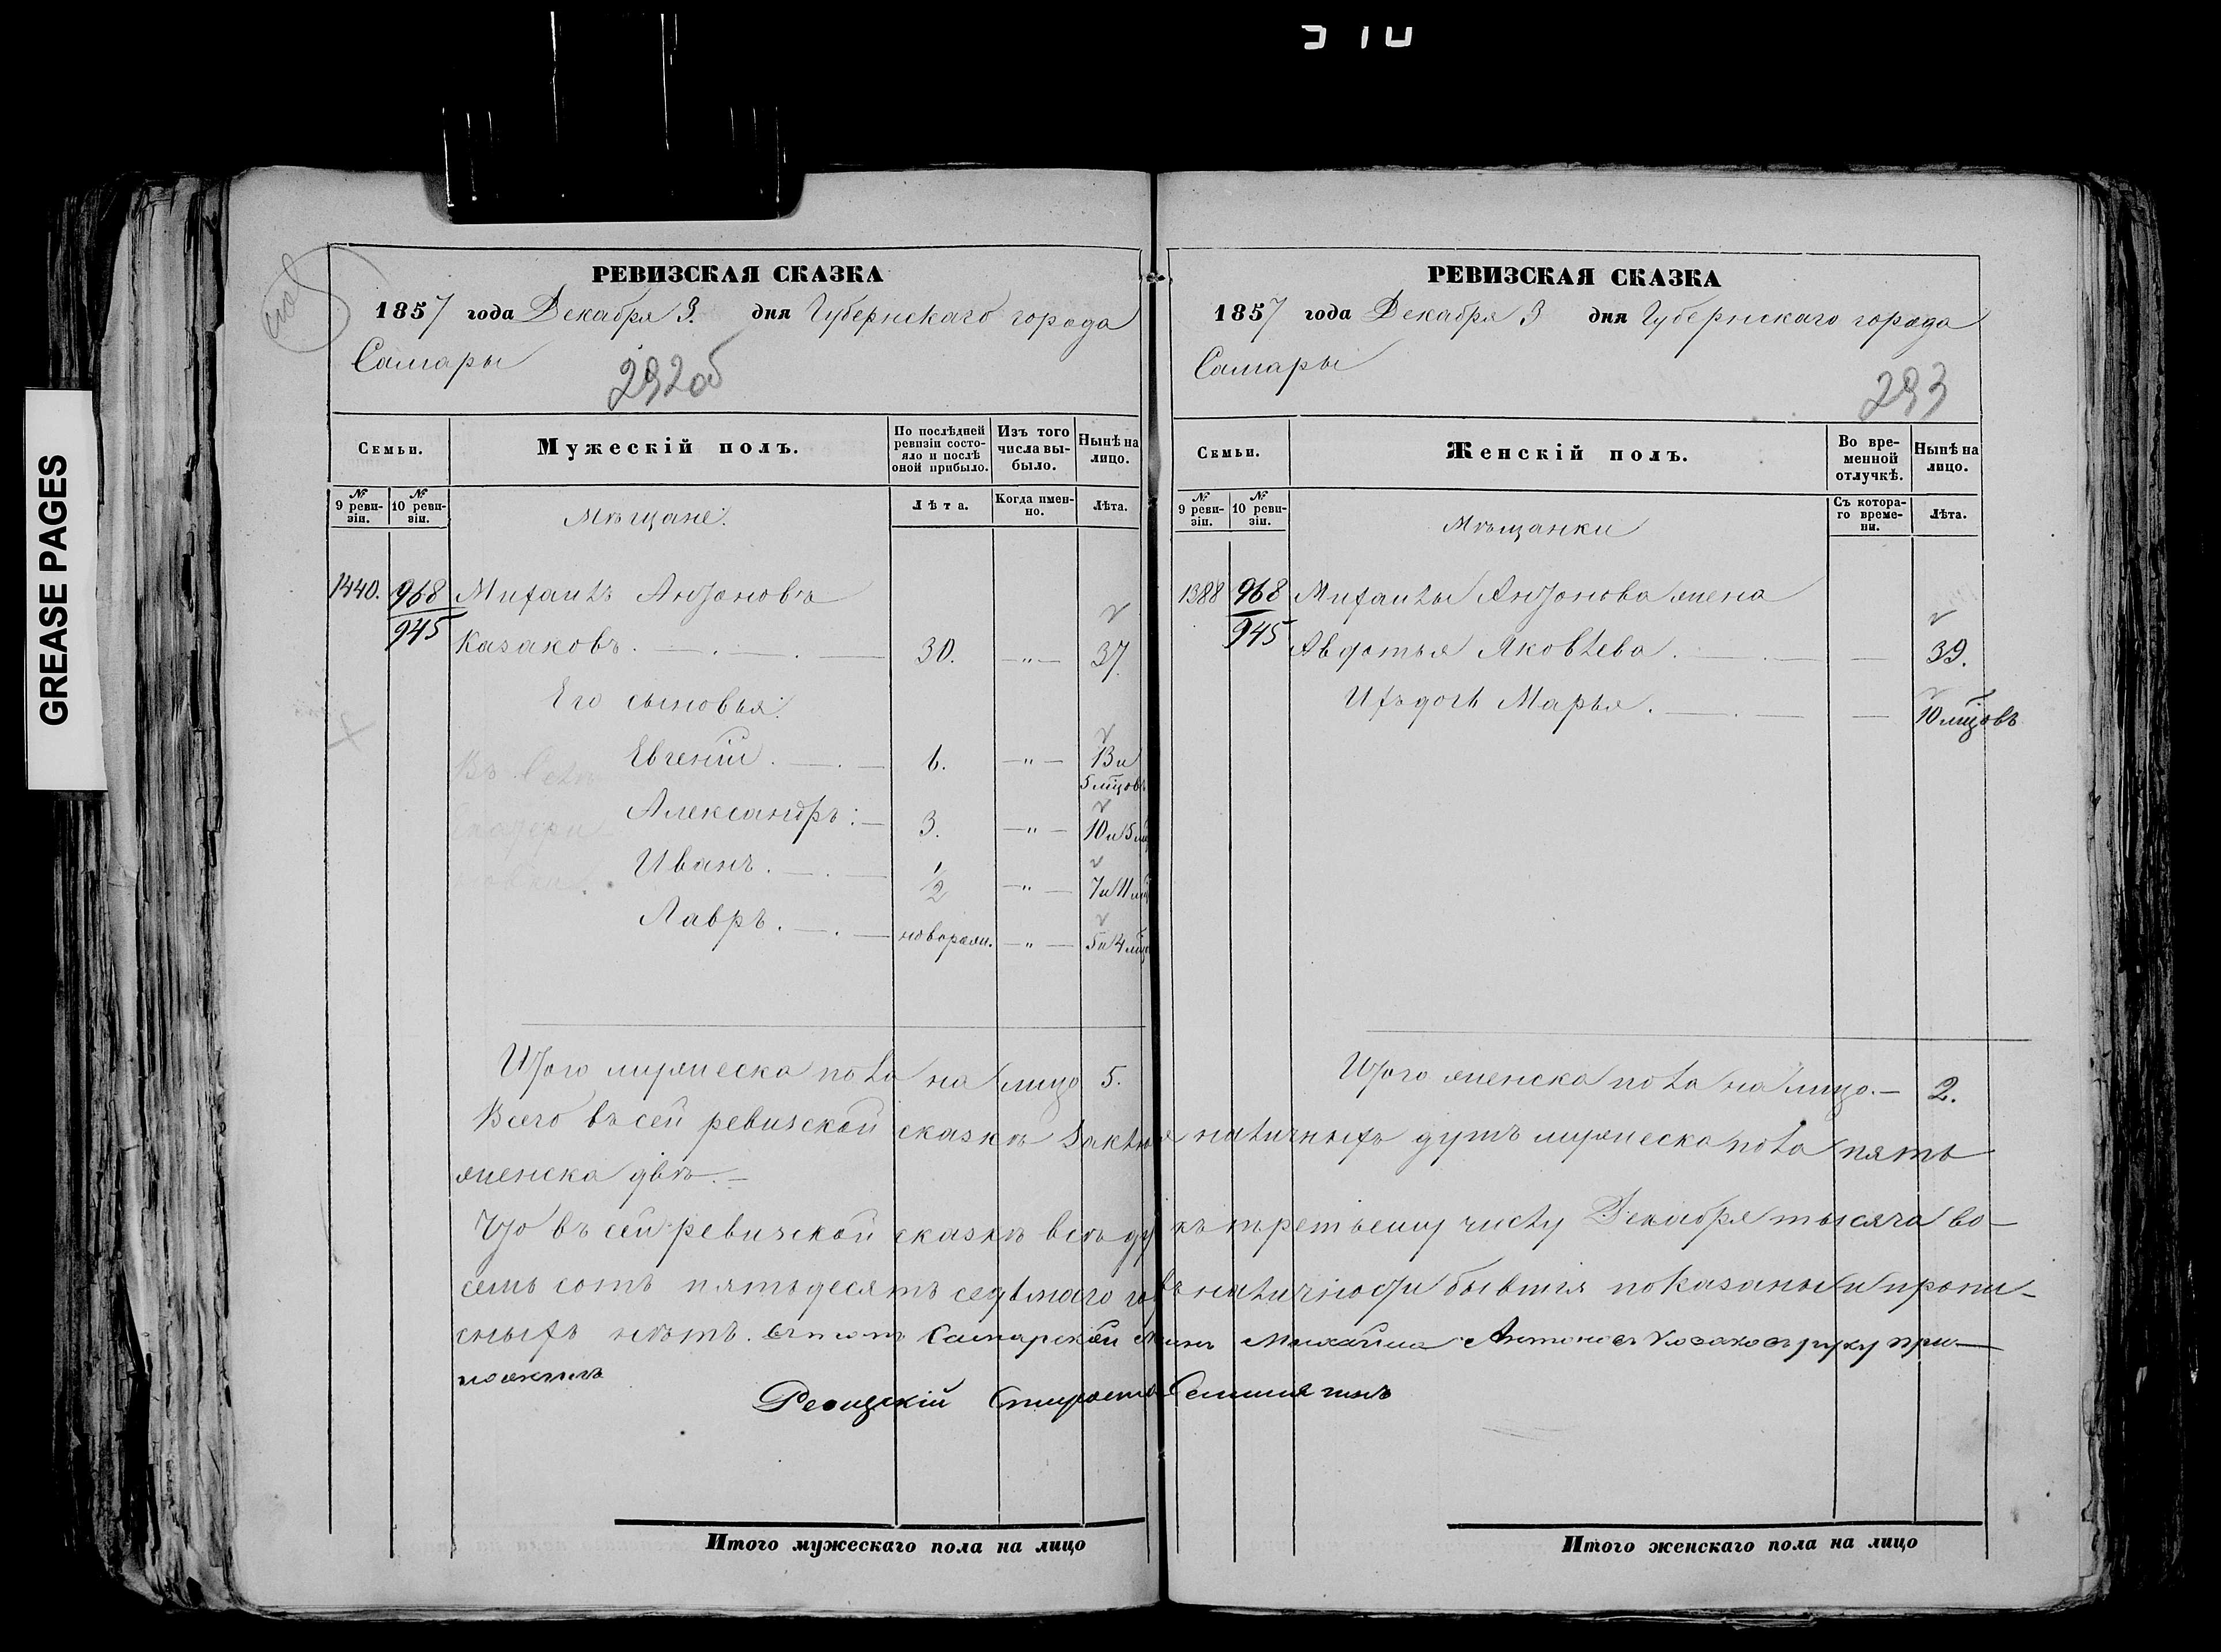 310
GREASE PAGES
РЕВИЗСКАЯ СКАЗКА
1857 года Декабря 3. дня Губернскаго города
Самары
292об
Семьи.
Мужескій полъ.
По послѣдней ревизіи состояло и послѣ оной прибыло.
Изъ того числа выбыло.
Нынѣ на лицо.
№ 9 ревизіи.
№ 10 ревизіи.
Мѣщане.
Лѣта.
Когда именно.
Лѣта.
1440. 968 Михаилъ Антоновъ
945 Казаковъ. 30. —"— 37
Его сыновья:
Евгеній. 6. —"— 13 и
5 мцовъ
Александръ: 3. —"— 10 и 5 мц
Иванъ. 1/2 —"— 7 и 11 мц
Лавръ. новорож. —"— 5 и 4 мц
Итого мужеска пола на лицо 5.
РЕВИЗСКАЯ СКАЗКА
1857 года Декабря 3 дня Губернскаго города
Самары
293
Семьи.
Женскій полъ.
Во временной отлучкѣ.
Нынѣ на лицо.
№ 9 ревизіи.
№ 10 ревизіи.
Мѣщанки
Съ котораго времени.
Лѣта.
1388 968 Михаилы Антонова жена
945 Авдотья Яковлева. — 39.
Ихъ дочь Марья. — 10 мцовъ
Итого женска пола на лицо. — 2.
Всего въ сей ревизской сказкѣ наличныхъ душъ мужеска пола пять
женска двѣ. —
Что въ сей ревизской сказкѣ всѣ къ третьему числу Декабря тысяча во-
семь сотъ пятьдесятъ седьмаго наличности бывшія показаны и пропи-
сныхъ нѣтъ. Самарской Михайла Антоновъ Казаковъ руку при-
ложилъ
Ревизскій Староста
Итого мужескаго пола на лицо
Итого женскаго пола на лицо